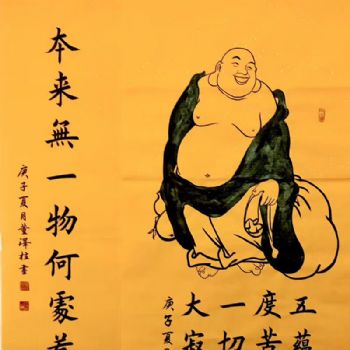 本来無一物何處
庚子夏月董澤柱書
五蘊
度苦
一切
大寂
庚子夏